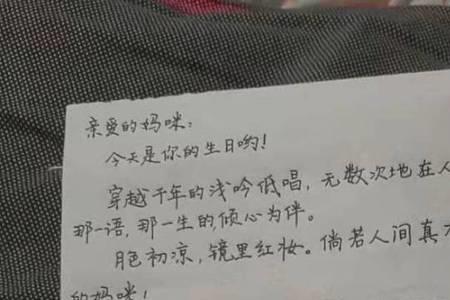 亲爱的妈咪：
今天是你的生日哟！
穿越千年的浅吟低唱，无数次地在人
那一语，那一生的倾心为伴。
色初凉，镜里红妆。倘若人间真
的妈咪！